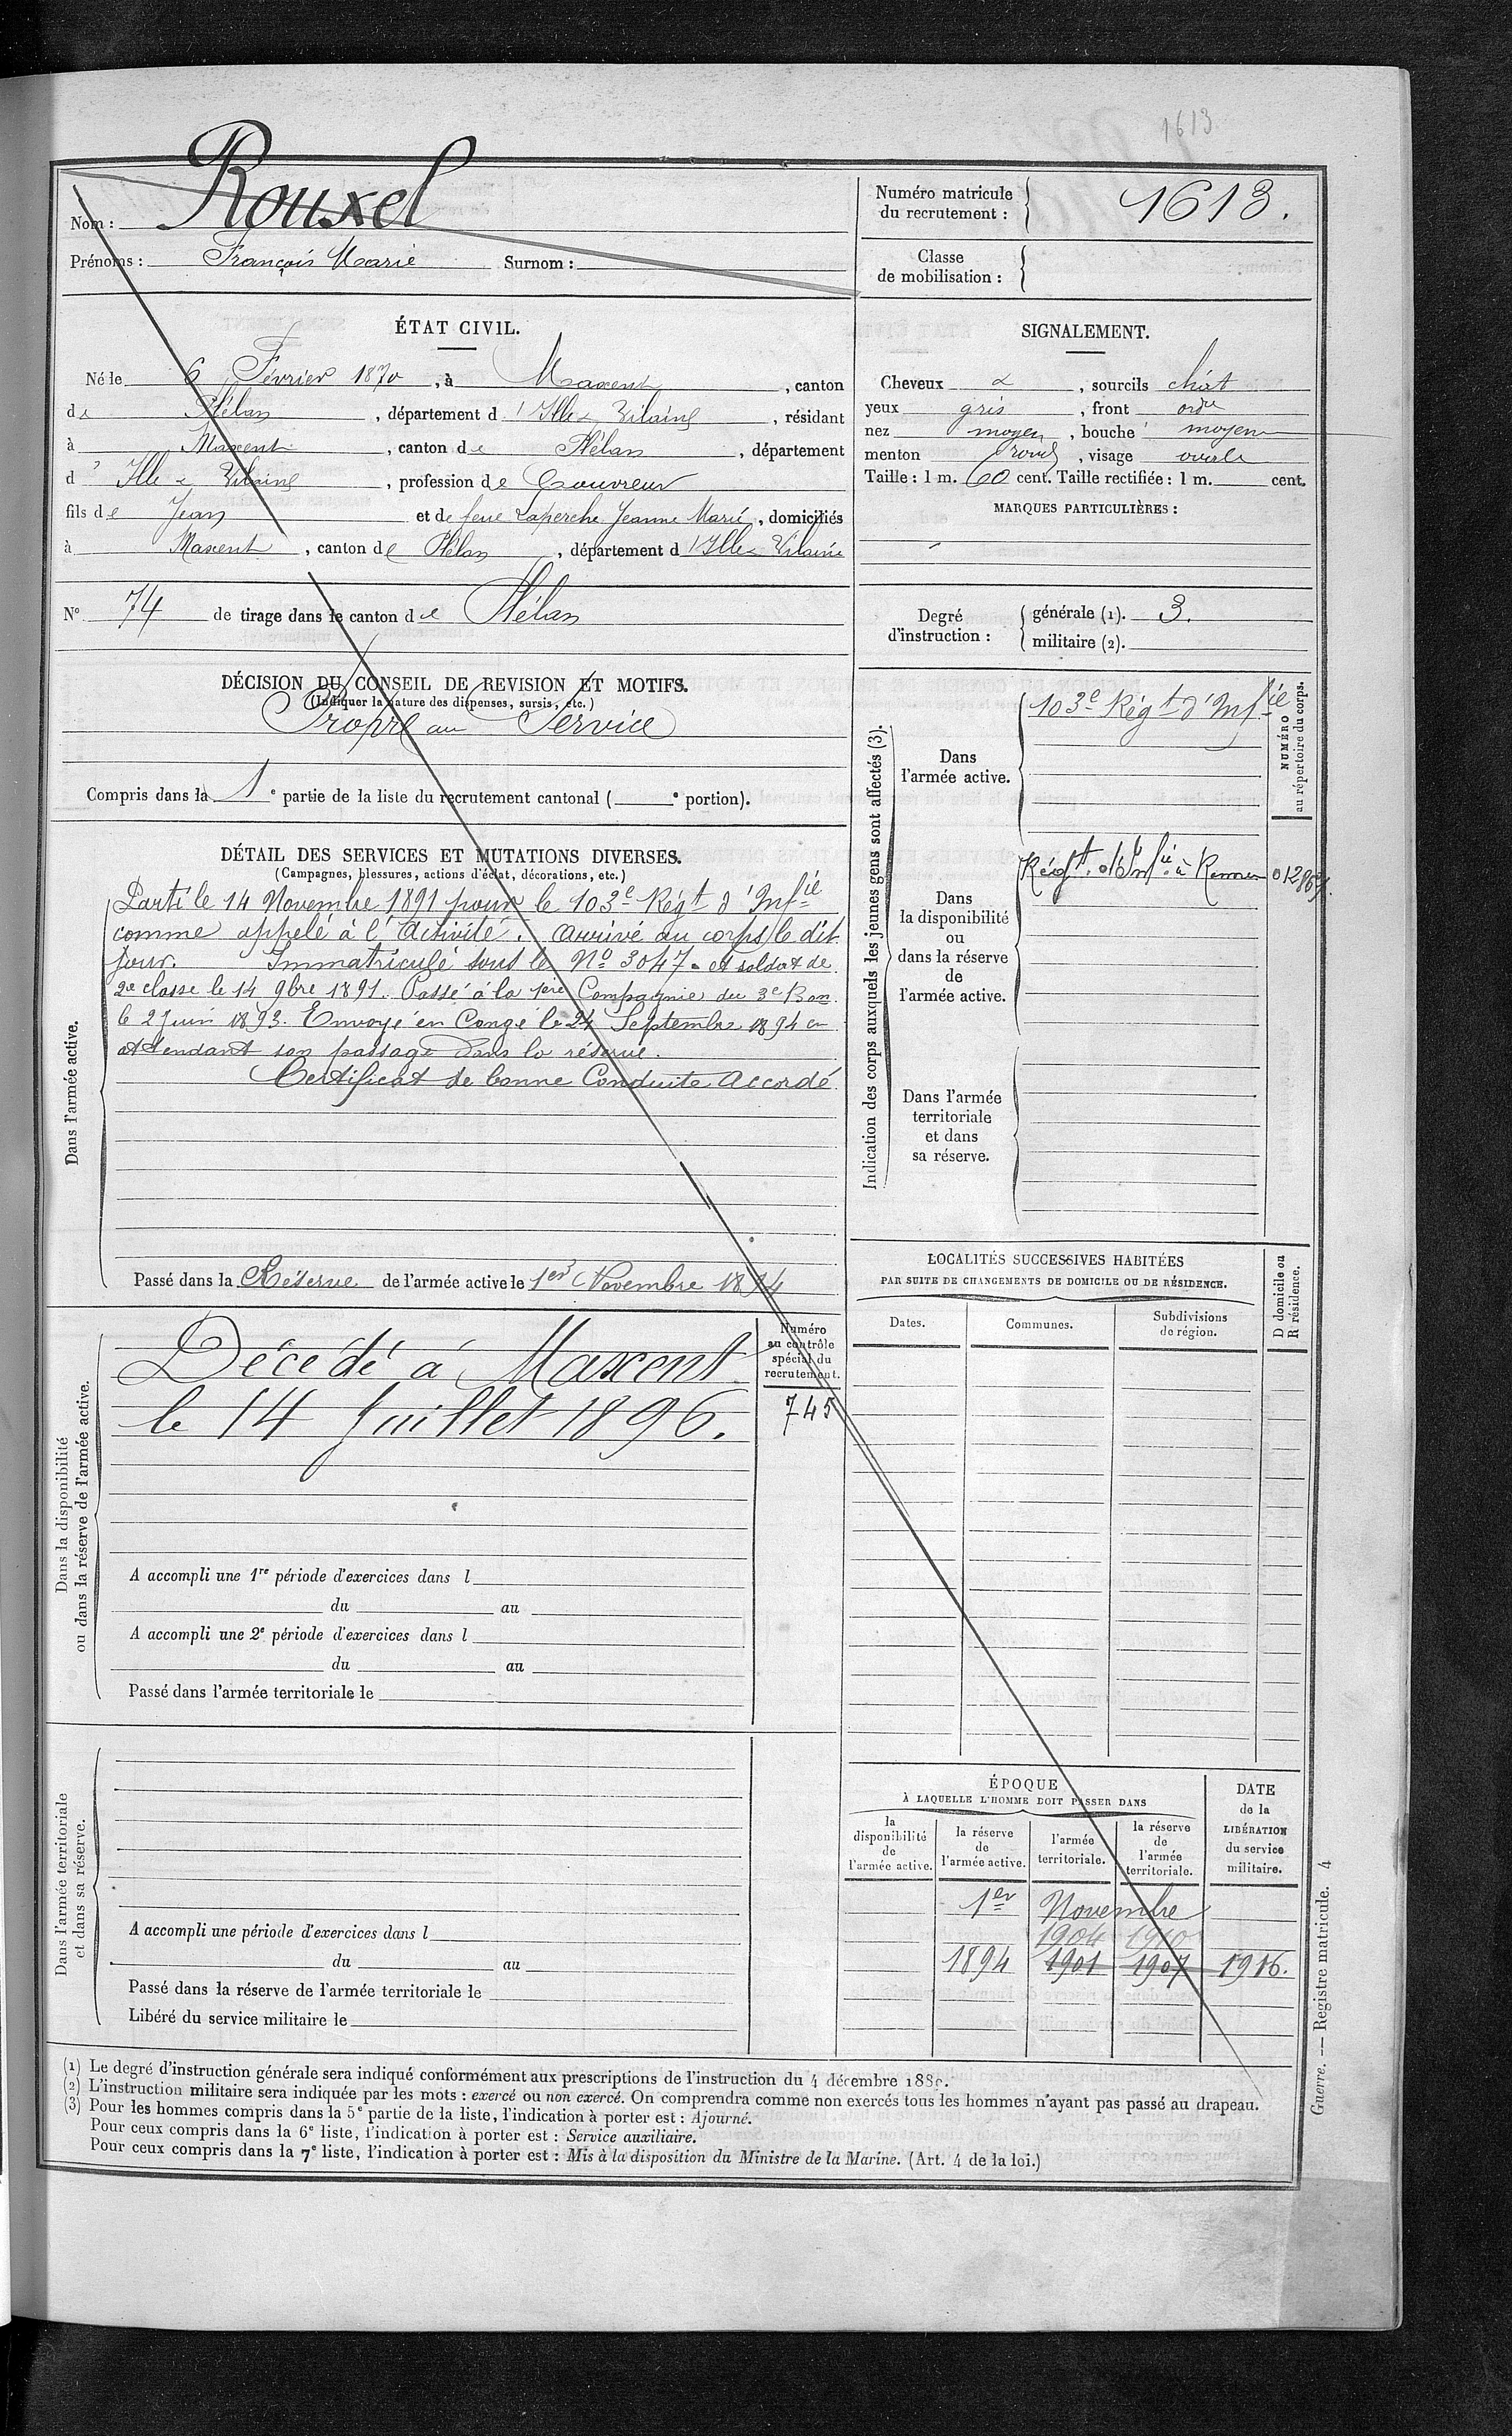 1613
Nom : Rouxel
Prénoms : François Marie Surnom :
Numéro matricule
du recrutement : 1613.
Classe
de mobilisation :
ÉTAT CIVIL.
Né le 6 Février 1870, à Maxent, canton
de Plélan, département d'Ille & Vilaine, résidant
à Maxent, canton de Plélan, département
d'Ille & Vilaine, profession de Couvreur
fils de Jean et de feue Laperche Jeanne Marie, domiciliés
à Maxent, canton de Plélan, département d'Ille & Vilaine
N° 74 de tirage dans le canton de Plélan
DÉCISION DU CONSEIL DE REVISION ET MOTIFS.
(Indiquer la nature des dispenses, sursis, etc.)
Propre au Service
Compris dans la 1e partie de la liste du recrutement cantonal ( e portion).
DÉTAIL DES SERVICES ET MUTATIONS DIVERSES.
(Campagnes, blessures, actions d'éclat, décorations, etc.)
Dans l'armée active.
Parti le 14 Novembre 1891 pour le 103e Régt d'Infie
comme appelé à l'activité. Arrivé au corps le dit
jour. Immatriculé sous le No 3047. et soldat de
2e classe le 14 9bre 1891. Passé à la 1ère Compagnie du 3e Bon
le 2 Juin 1893. Envoyé en Congé le 24 Septembre 1894 en
attendant son passage dans la réserve.
Certificat de bonne Conduite Accordé
Passé dans la Réserve de l'armée active le 1er Novembre 1894
Dans la disponibilité
ou dans la réserve de l'armée active.
Décédé à Maxent
le 14 Juillet 1896.
Numéro
au contrôle
spécial du
recrutement.
745
A accompli une 1re période d'exercices dans l
du au
A accompli une 2e période d'exercices dans l
du au
Passé dans l'armée territoriale le
Dans l'armée territoriale
et dans sa réserve.
A accompli une période d'exercices dans l
du au
Passé dans la réserve de l'armée territoriale le
Libéré du service militaire le
SIGNALEMENT.
Cheveux &, sourcils chat
yeux gris, front ordre
nez moyen, bouche moyenne
menton rond, visage ovale
Taille : 1 m. 60 cent. Taille rectifiée : 1 m. cent.
MARQUES PARTICULIÈRES :
Degré
d'instruction :
générale (1). 3.
militaire (2).
Indication des corps auxquels les jeunes gens sont affectés (3).
Dans
l'armée active.
103e Régt d'Infie
NUMÉRO
au répertoire du corps.
Dans
la disponibilité
ou
dans la réserve
de
l'armée active.
Régt. d'Infie à Rennes
Dans l'armée
territoriale
et dans
sa réserve.
LOCALITÉS SUCCESSIVES HABITÉES
PAR SUITE DE CHANGEMENTS DE DOMICILE OU DE RÉSIDENCE.
D domicile ou
R résidence.
Dates. Communes. Subdivisions
de région.
ÉPOQUE
À LAQUELLE L'HOMME DOIT PASSER DANS
la
disponibilité
de
l'armée active.
la réserve
de
l'armée active.
l'armée
territoriale.
la réserve
de
l'armée
territoriale.
DATE
de la
LIBÉRATION
du service
militaire.
1er Novembre
1904 1910
1894 1901 1907 1916.
Guerre. — Registre matricule. 4
(1) Le degré d'instruction générale sera indiqué conformément aux prescriptions de l'instruction du 4 décembre 1889.
(2) L'instruction militaire sera indiquée par les mots : exercé ou non exercé. On comprendra comme non exercés tous les hommes n'ayant pas passé au drapeau.
(3) Pour les hommes compris dans la 5e partie de la liste, l'indication à porter est : Ajourné.
Pour ceux compris dans la 6e liste, l'indication à porter est : Service auxiliaire.
Pour ceux compris dans la 7e liste, l'indication à porter est : Mis à la disposition du Ministre de la Marine. (Art. 4 de la loi.)